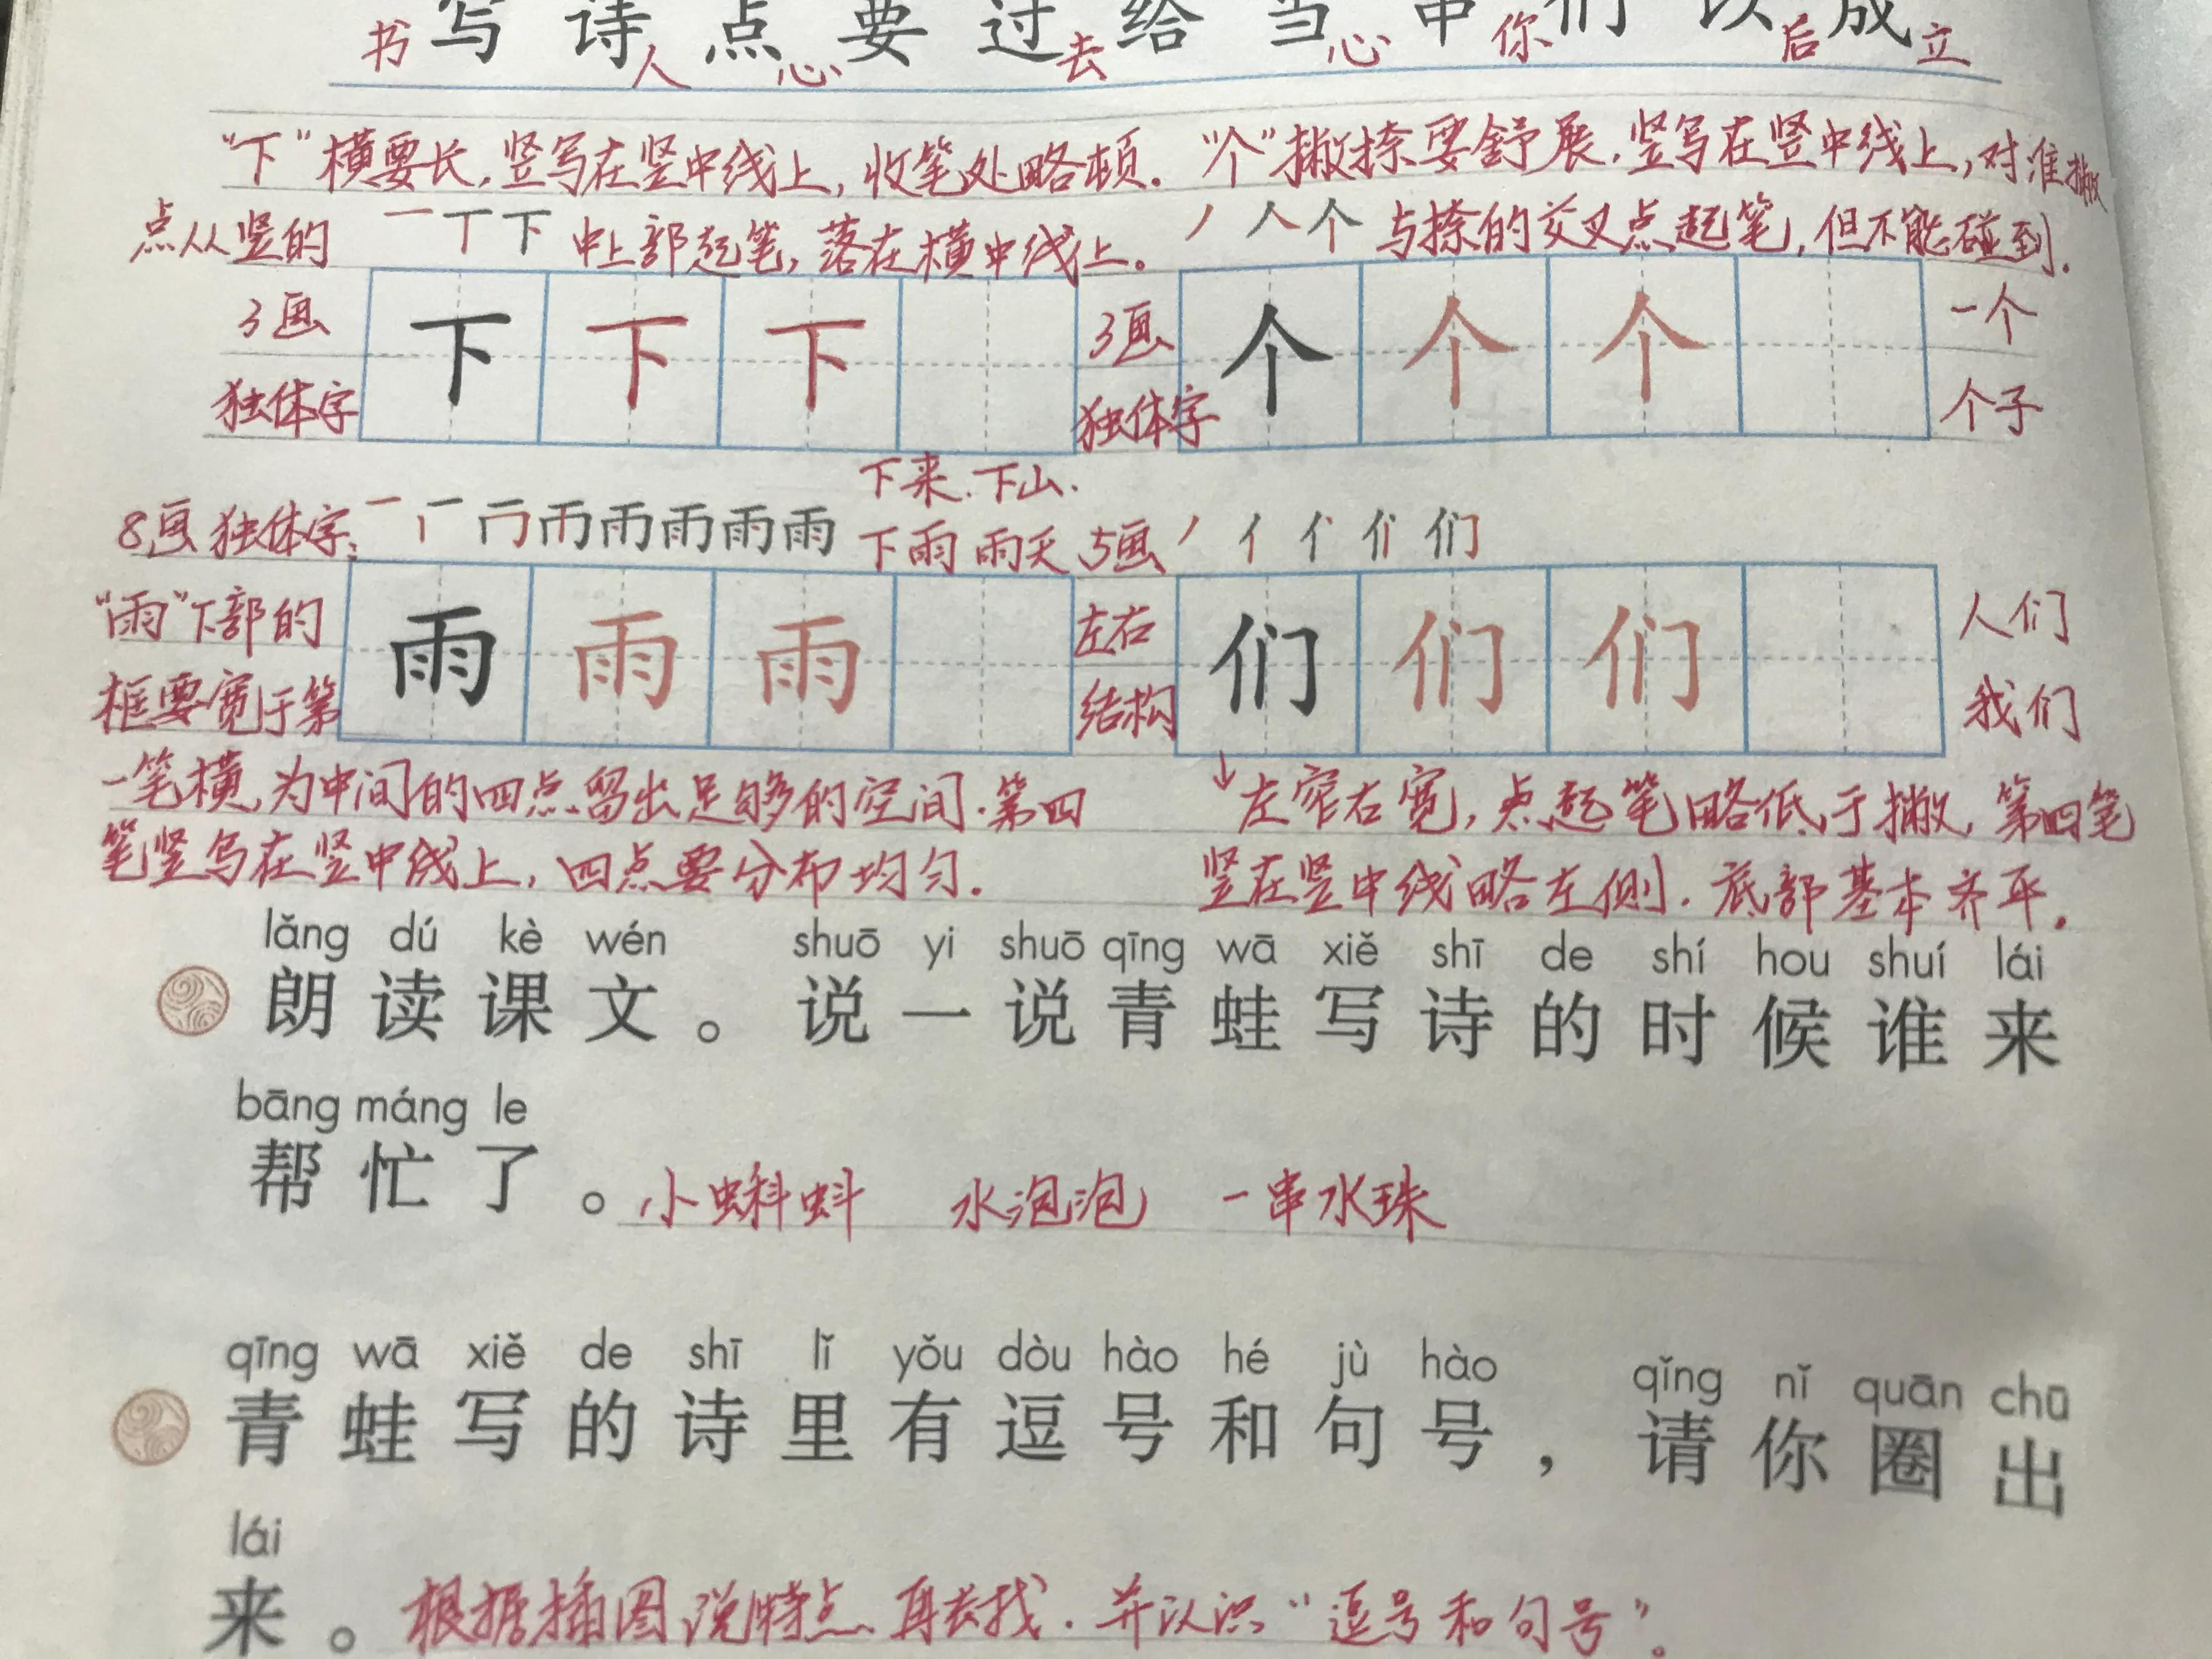 写 诗 点 要 过 给 当 串 们 以 成
书 人 心 去 心 你 后 立
“下”横要长，竖写在竖中线上，收笔处略顿。 “个”撇捺要舒展，竖写在竖中线上，对准撇
点从竖的 一 丅 下 中上部起笔，落在横中线上。 丿 人 个 与捺的交叉点起笔，但不能碰到。
3画 下 下 下 3画 个 个 个 一个
独体字 独体字 个子
下来.下山.
8画 独体字, 雨 雨 雨 雨 下雨 雨天 5画 丿 亻 们
“雨”下部的 雨 雨 雨 左右 们 们 们 人们
框要宽于第 结构 我们
一笔横,为中间的四点留出足够的空间.第四 ↓左窄右宽，点起笔略低于撇，第四笔
笔竖写在竖中线上，四点要分布均匀. 竖在竖中线略左侧.底部基本齐平。
lǎng dú kè wén shuō yi shuō qīng wā xiě shī de shí hou shuí lái
朗 读 课 文 。 说 一 说 青 蛙 写 诗 的 时 候 谁 来
bāng máng le
帮 忙 了 。小蝌蚪 水泡泡 一串水珠
qīng wā xiě de shī lǐ yǒu dòu hào hé jù hào qǐng nǐ quān chū
青 蛙 写 的 诗 里 有 逗 号 和 句 号 ， 请 你 圈 出
lái
来 。根据插图说特点、再去找.并认识“逗号和句号”。